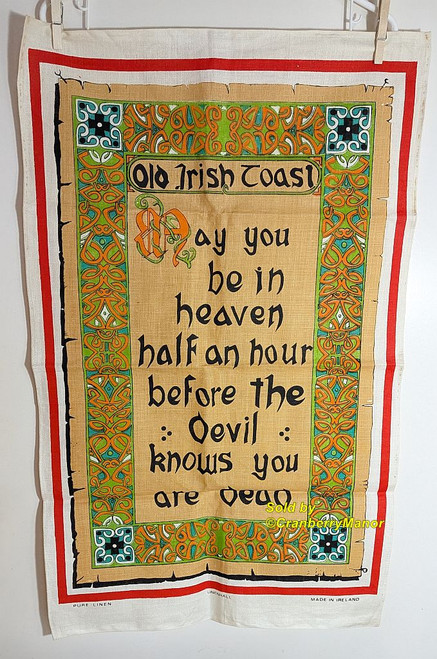 Old Irish Toast
May you
be in
heaven
half an hour
before the
Devil
knows you
are Dead
Sold by
©CranberryManor
PURE LINEN
MADE IN IRELAND